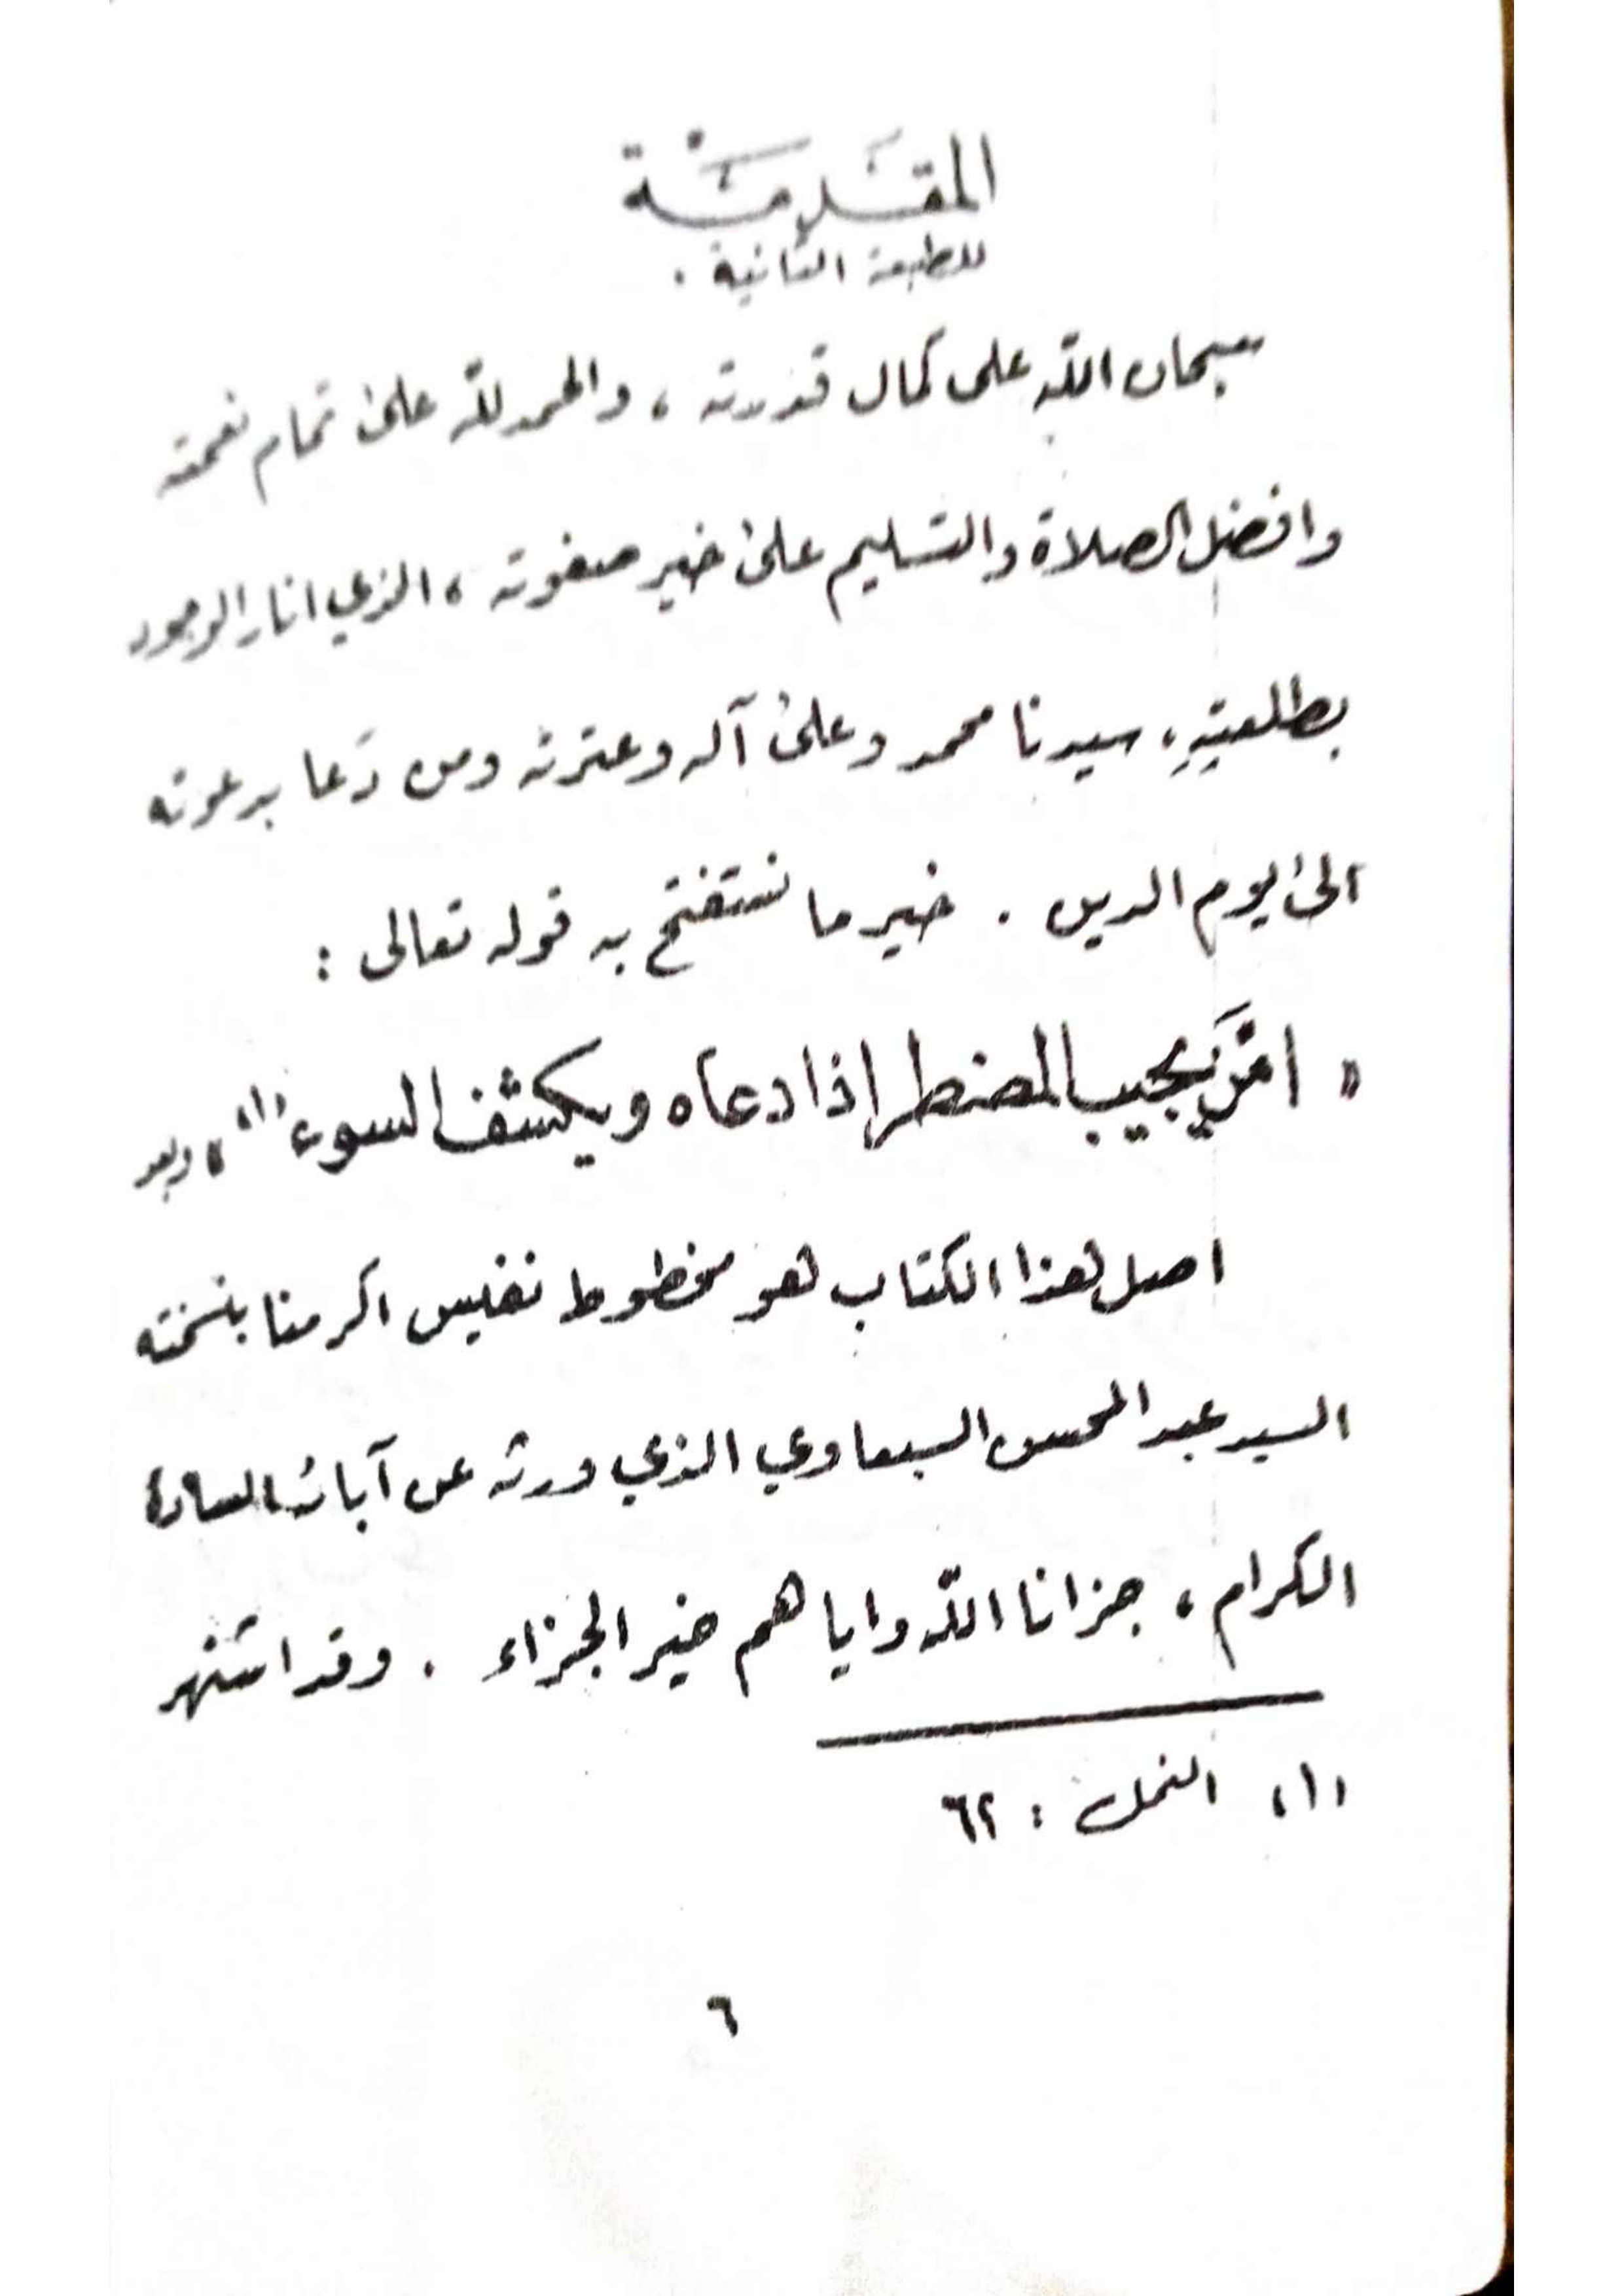 المقدمة
للطبعة الثانية .
سبحان الله على كمال قدرته ، والحمد لله على تمام نعمته
وافضل الصلاة والتسليم على خير صفوته ، الذي انار الوجود
بطلعتِهِ ، سيدنا محمد وعلى آله وعترته ومن دَعا بدعوته
الى يوم الدين . خير ما نستفتح به قوله تعالى :
" امَّن يَجيب المضطر اذا دعاه ويكشف السوء (١) " وبعد
اصل هذا الكتاب هو مخطوط نفيس اكرمنا بنسخته
السيد عبد المحسن السبعاوي الذي ورثه عن آبائه السادة
الكرام ، جزانا الله واياهم خير الجزاء . وقد اشتهر
(١) النمل : ٦٢
٦